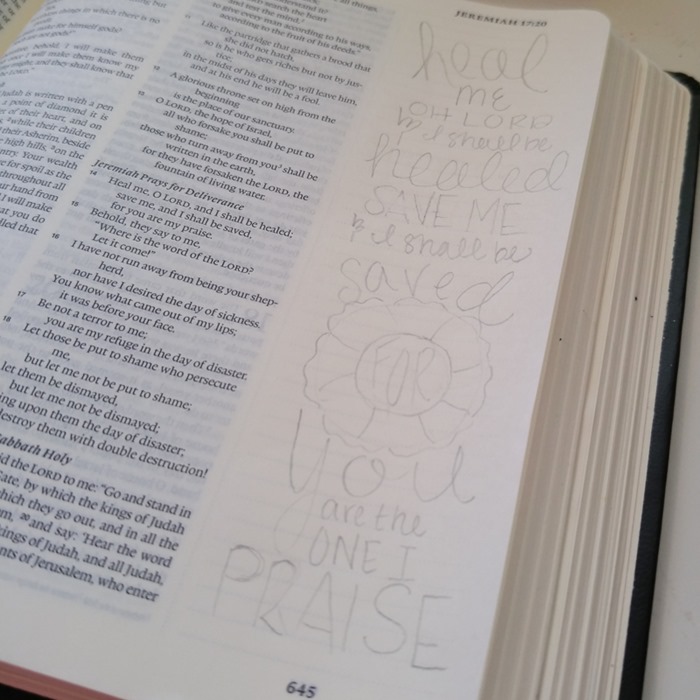 JEREMIAH 17:20
search the heart
and test the mind,
to give every man according to his ways,
according to the fruit of his deeds."
11 Like the partridge that gathers a brood that
she did not hatch,
so is he who gets riches but not by jus-
tice;
in the midst of his days they will leave him,
and at his end he will be a fool.
12 A glorious throne set on high from the
beginning
is the place of our sanctuary.
13 O LORD, the hope of Israel,
all who forsake you shall be put to
shame;
those who turn away from you shall be
written in the earth,
for they have forsaken the LORD, the
fountain of living water.
Jeremiah Prays for Deliverance
14 Heal me, O LORD, and I shall be healed;
save me, and I shall be saved,
for you are my praise.
15 Behold, they say to me,
"Where is the word of the LORD?
Let it come!"
16 I have not run away from being your shep-
herd,
nor have I desired the day of sickness.
You know what came out of my lips;
it was before your face.
17 Be not a terror to me;
you are my refuge in the day of disaster.
18 Let those be put to shame who persecute
me,
but let me not be put to shame;
let them be dismayed,
but let me not be dismayed;
upon them the day of disaster;
destroy them with double destruction!
Sabbath Holy
the LORD to me: "Go and stand in
Gate, by which the kings of Judah
which they go out, and in all the
20 and say: 'Hear the word
kings of Judah, and all Judah,
of Jerusalem, who enter
645
heal
ME
OH LORD
& I shall be
healed
SAVE ME
& I shall be
saved
FOR
You
are the
ONE I
PRAISE